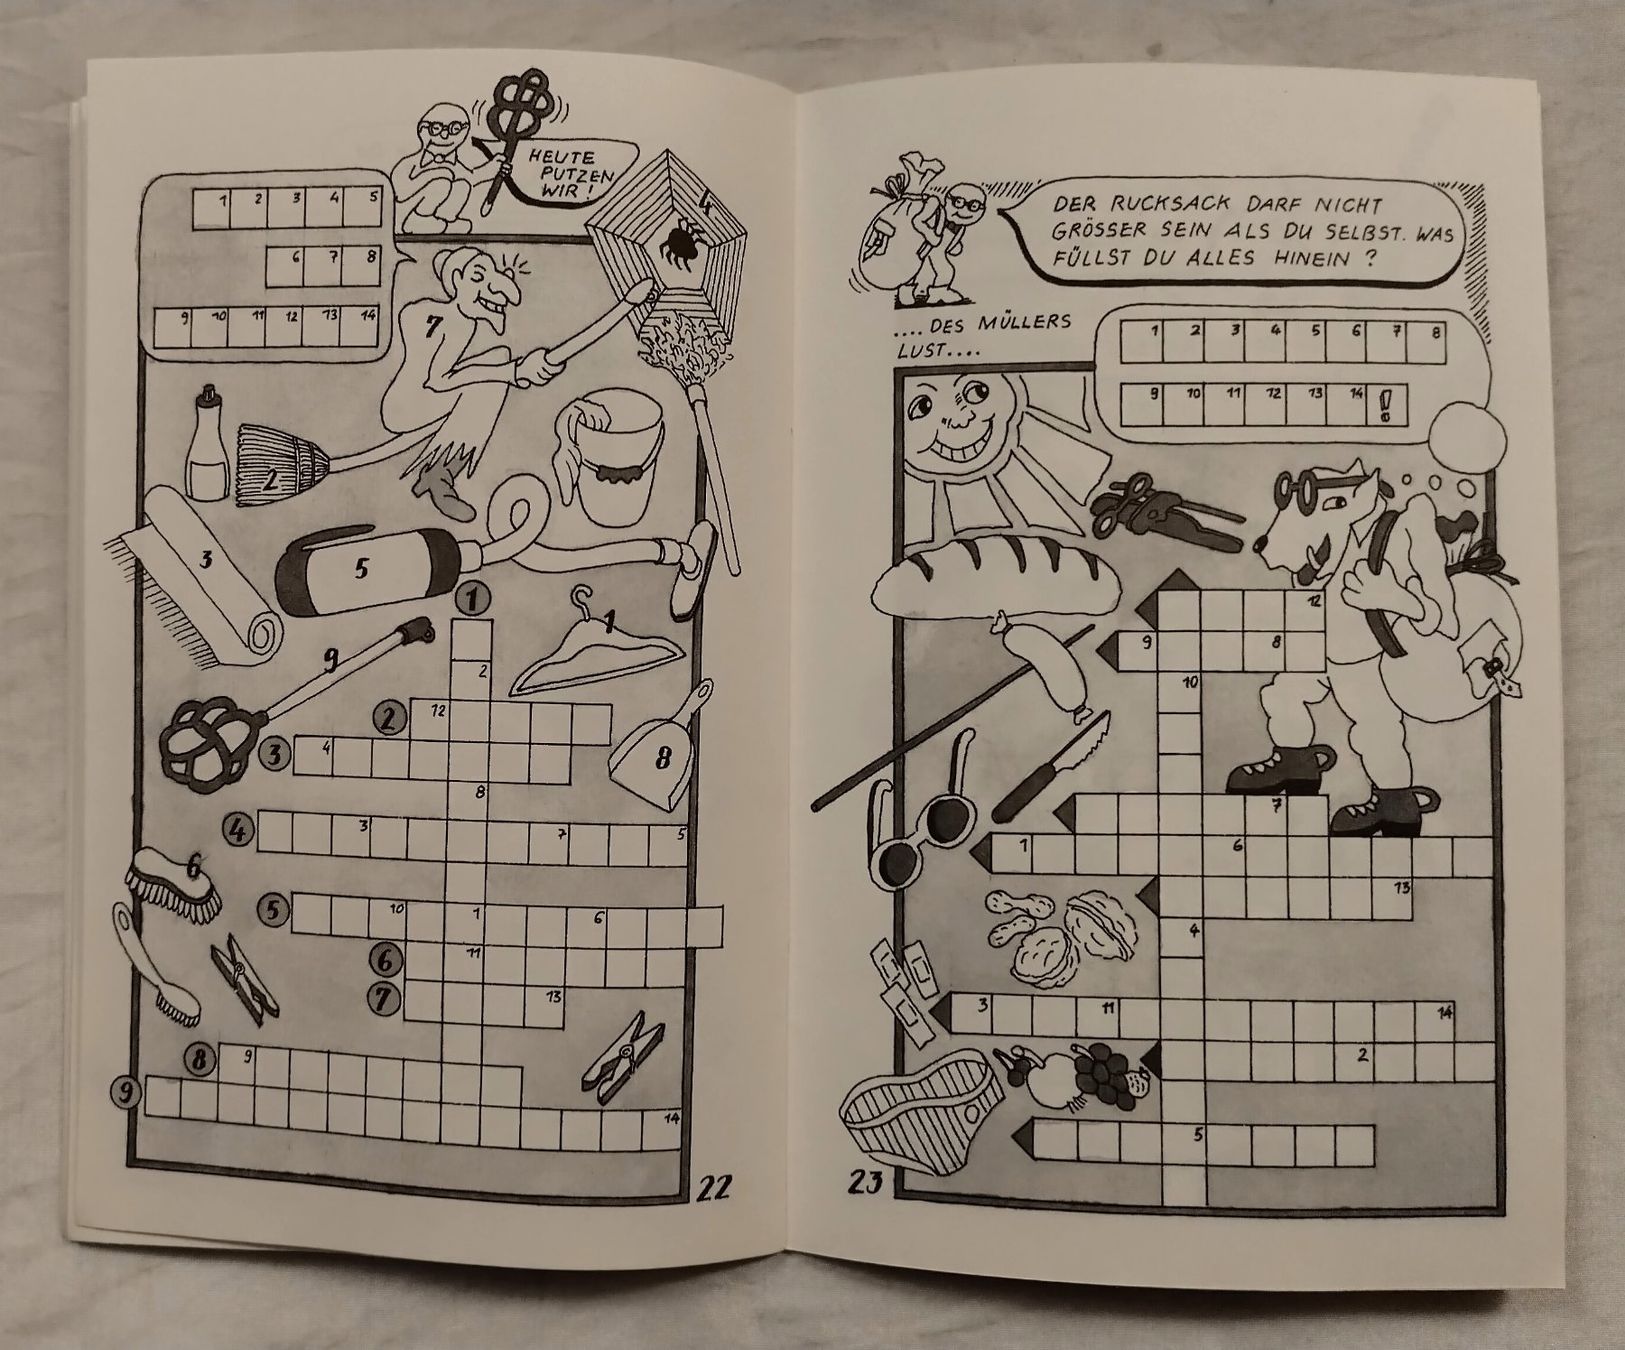 HEUTE
PUTZEN
WIR!
1 2 3 4 5
6 7 8
9 10 11 12 13 14
4
7
2
3
5
1
1
9
2
2 12
8
3 4
8
4 3 7 5
6
5 10 1 6
6 11
7 13
8 9
9 14
22
DER RUCKSACK DARF NICHT
GRÖSSER SEIN ALS DU SELBST. WAS
FÜLLST DU ALLES HINEIN ?
.... DES MÜLLERS
LUST....
1 2 3 4 5 6 7 8
9 10 11 12 13 14 !
12
9 8
10
7
1 6
13
4
3 11 14
2
5
23